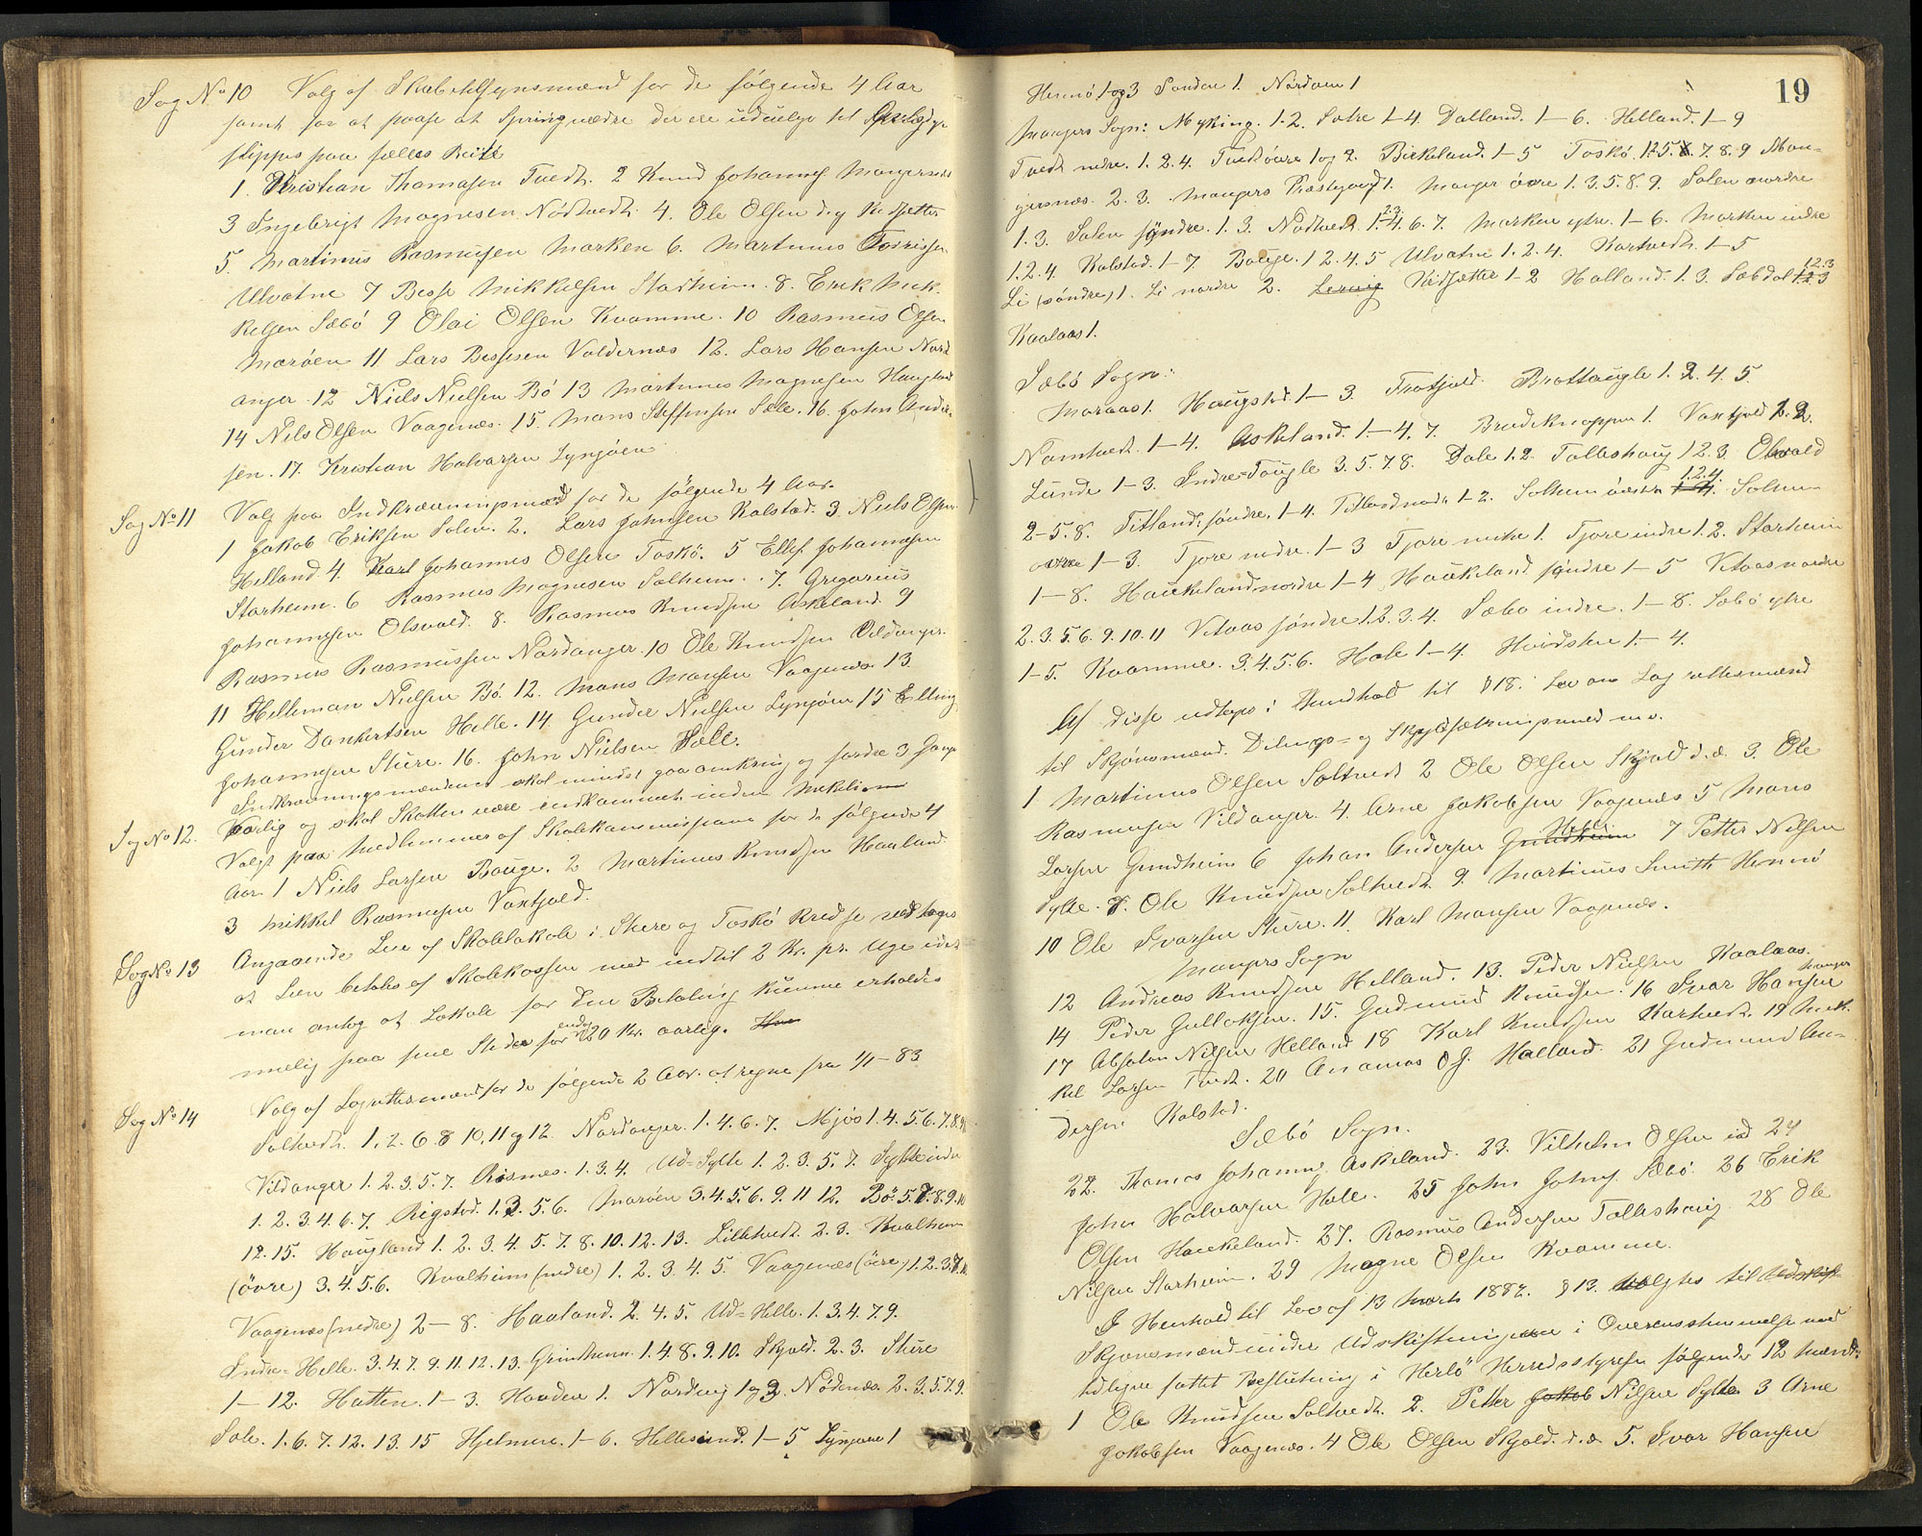 Sag No 10 Valg af Skabeftilsynsmænd for de følgende 4 Aar
samt for at paase at Springvædre der ere uduelige til Avlsdyr
slippes paa fælles Beite
1. Kristian Thomasen Tvedt. 2 Knud Johannes Mangersnes
3 Ingebrigt Magnesen Nödtvedt. 4. Ole Olsen d.y. Vidsetter
5. Martinus Rasmusen Marken 6. Martinus Torrissen
Ulvatne 7 Besse Mikkelsen Starheim. 8. Erik Mik-
kelsen Sæbö 9 Olai Olsen Kvamme. 10 Rasmus Olsen
Maröen 11 Lars Bessesen Valdernæs 12. Lars Hansen Nord
anger. 12 Niels Nielsen Bö 13 Martinus Magnesen Haugland
14 Nils Olsen Vaagenæs. 15 Mans Steffensen Sæle. 16. John Ander-
sen. 17. Kristian Halvarsen Lynjöen
Sag No 11 Valg paa Indkrævningsmænd for de følgende 4 Aar.
1 Jakob Eriksen Solen. 2. Lars Johnsen Kolstad. 3 Niels Olsen
Helland 4. Karl Johannes Olsen Toskö. 5 Ellef Johannesen
Starheim. 6 Rasmus Magnesen Solheim. 7. Gregorius
Johannesen Olsvold. 8. Rasmus Knudsen Askeland. 9
Rasmus Rasmussen Nordanger. 10 Ole Knudsen Vildanger.
11 Helleman Nielsen Bö. 12. Mans Mansen Vaagenæs. 13.
Gunder Dankertsen Helle. 14. Gunder Nielsen Lynjöen 15 Elling
Johannesen Sture. 16. John Nielsen Sæle.
Indkrævningsmændene skal mindst gaa omkring og fordre 3 Gange
aarlig og skal Skatten være indkommet inden Mikkeli
Sag No 12. Valgt paa Medlemmer af Skolekommissionen for de følgende 4
Aar 1 Niels Larsen Bauge. 2 Martinus Knudsen Haaland
3 Mikkel Rasmusen Vaxtjold.
Sag No 13 Angaaende Leie af Skolelokale i Sture og Toskö Kredse vedtoges
at Leien betales af Skolekassen med indtil 2 Kr. pr. Uge idet
man antog at Lokale for den Betaling kunne erholdes
nemlig paa fire Steder for indtil 20 Kr. aarlig.
Sag No 14 Valg af Lagrettesmænd for de følgende 2 Aar at regne fra 1/1-83
Soltvedt. 1. 2. 6. 8 10. 11 og 12. Nordanger. 1. 4. 6. 7. Mjös 1. 4. 5. 6. 7. 8. 9
Vildanger 1. 2. 3. 5. 7. Rosnæs. 1. 3. 4. Ud-Sylte 1. 2. 3. 5. 7. Sylte indre
1. 2. 3. 4. 6. 7. Rigstad. 1. 3. 5. 6. Maröen 3. 4. 5. 6. 9. 11 12. Bö. 5. 7. 8. 9. 10
12. 15. Haugland 1. 2. 3. 4. 5. 7. 8. 10. 12. 13. Lilletvedt. 2. 3. Kvalheim
(övre) 3. 4. 5. 6. Kvalheim (nedre) 1. 2. 3. 4. 5. Vaagenæs (övre) 1. 2. 3. 7. 8.
Vaagenæs (nedre) 2 — 8. Haaland. 2. 4. 5. Ud-Helle. 1. 3. 4. 7. 9.
Indre-Helle. 3. 4. 7. 9. 11. 12. 13. Grindheim. 1. 4. 8. 9. 10. Skjold. 2. 3. Sture
1 — 12. Hatten. 1 — 3. Hovden 1. Nordvig 1 og 2. Nödenæs. 2. 3. 5. 7. 9.
Sæle. 1. 6. 7. 12. 13. 15 Hjelmen. 1 — 6. Hellesund. 1 — 5 Lynjöen 1
19
Hernö 1 og 3 Sanden 1. Nordöen 1
Mangers Sogn: Myking. 1-2. Sætre 1-4. Dalland. 1 — 6. Helland. 1 — 9
Tvedt nedre. 1. 2. 4. Tvedt övre 1 og 2. Birkeland. 1 — 5 Toskö. 1. 2. 5. 7. 8. 9 Man-
gersnæs. 2. 3. Mangers Præstegaard 1. Manger övre 1. 3. 5. 8. 9. Solen nordre
1. 3. Solen söndre. 1. 3. Nödtvedt 1. 2. 3. 4. 6. 7. Marken ytre. 1 — 6. Marken indre
1. 2. 4 Kolstad. 1 — 7. Bauge. 1 2. 4. 5 Ulvatne 1. 2. 4. Kartvedt. 1 — 5
Li (söndre) 1. Li nordre 2. Vidsetter 1-2 Halland. 1. 3. Sæbdal 1. 2. 3
Kaalaas 1.
Sæbö Sogn:
Maraas 1. Haugstad. 1 — 3. Brottaugle 1. 2. 4. 5
Namtvedt. 1 — 4. Askeland. 1 — 4. 7. Bredeknappen 1. Vaxtjold 1. 2.
Lunde 1 — 3. Indre-Taugle 3. 5. 7 8. Dale 1. 2. Talleshaug 1 2. 3. Olsvold
2 — 5. 8. Titland söndre. 1 — 4. Titland nordre 1-2. Solheim 1. 2. 4. Solheim
övre 1 — 3. Tjore nedre. 1 — 3 Tjore 1. Tjore indre 1. 2. Starheim
1 — 8. Haukeland nordre 1 — 4. Haukeland söndre 1 — 5 Vetaas nordre
2. 3. 5 6. 9. 10. 11 Vetaas söndre 1. 2. 3. 4. Sæbö indre. 1 — 8. Sæbö ytre
1 — 5. Kvamme. 3. 4. 5. 6. Hole 1 — 4 Hvidsten 1. — 4.
Af disse udtoges i Henhold til § 18 i Lov om Lagrettesmænd
til Skjønsmænd. Delings- og Skydsætningsmænd m.v.
1 Martinus Olsen Soltvedt 2 Ole Olsen Skjold d.æ. 3. Ole
Rasmusen Vildanger. 4. Arne Jakobsen Vaagenæs 5 Mans
Larsen Grindheim 6 Johan Andersen Grindheim Helle 7 Petter Nilsen
Sylte. 8. Ole Knudsen Soltvedt. 9. Martinus Smith Hernö
10 Ole Ivarsen Sture. 11. Karl Mansen Vaagenæs.
Mangers Sogn
12 Andreas Knudsen Helland. 13. Peder Nielsen Kaalaas.
14 Peder Gullaksen. 15. Gudmund Knudsen. 16 Ivar Hansen Manger
17 Absalon Nilsen Helland 18 Karl Knudsen Kartvedt. 19 Mik-
kel Larsen Tvedt. 20 Ananias O J. Halland. 21 Gudmund An-
dersen Kolstad.
Sæbö Sogn.
22. Thomas Johannes. Askeland. 23. Vilhelm Olsen 24
John Halvarsen Hole. 25 John Johns. Sæbö. 26 Erik
Olsen Haukeland. 27. Rasmus Andersen Talleshaug. 28 Ole
Nilsen Starheim. 29 Magne Olsen Kvamme.
I Henhold til Lov af 13 Marts 1882. § 13. valgtes til Udskift-
Skjønsmænd under Udskiftningen i Overensstemmelse med
tidligere fattet Beslutning i Herlö Herredsstyrelse følgende 12 Mænd:
1 Ole Knudsen Soltvedt. 2. Petter Jakob Nilsen Sylte 3 Arne
Jakobsen Vaagenæs. 4 Ole Olsen Skjold. d.æ 5. Ivar Hansen